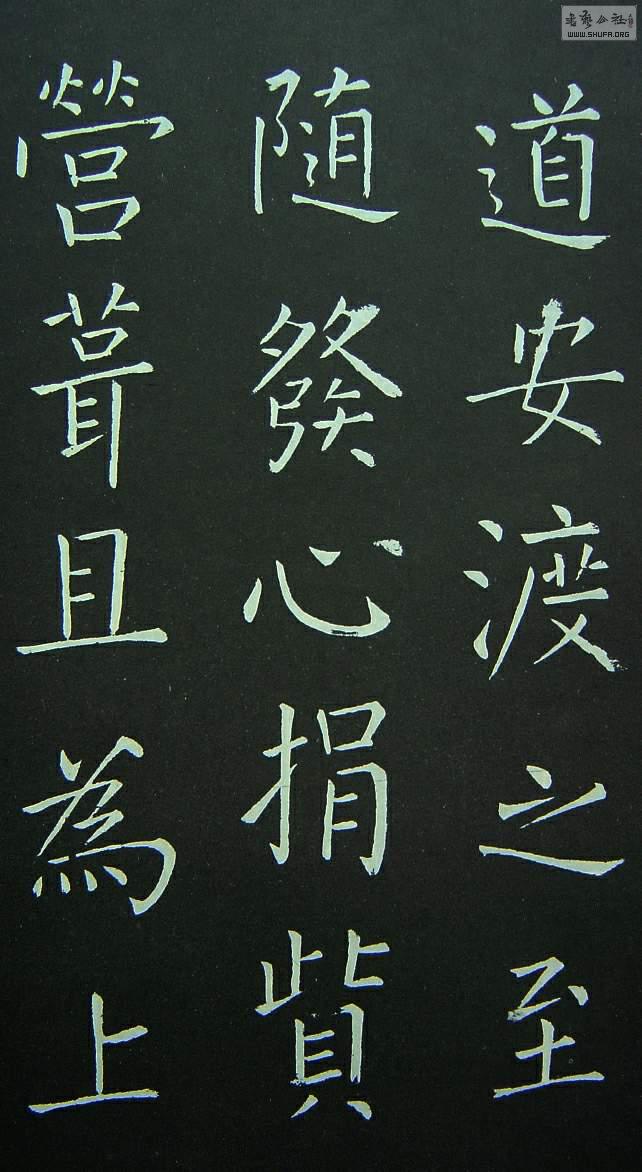 道安渡之至
随發心捐貲
營葺且為上
書藝公社
WWW.SHUFA.ORG